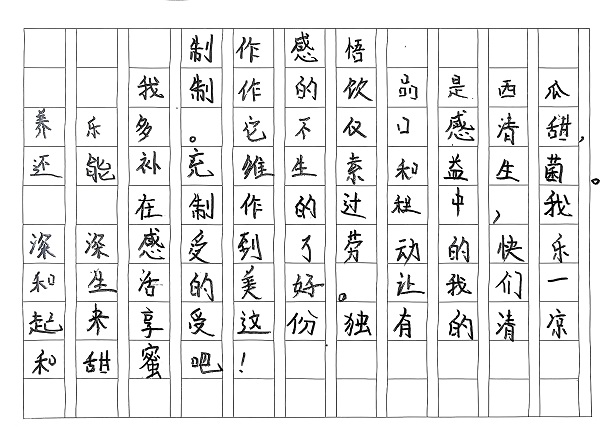 制作感悟
我制作的饮品是西瓜
养乐多。它不仅口感清甜,
还能补充维生素和益生菌。
在制作的过程中,我
深深感受到了劳动的快乐
和生活的美好。让我们一
起来享受这份独有的清凉
和甜蜜吧!